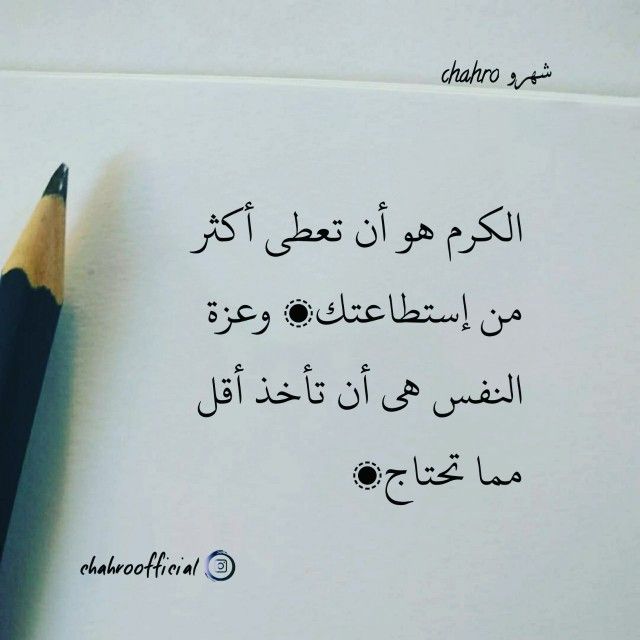 شهرو chahro
الكرم هو أن تعطى أكثر
من إستطاعتك۝ وعزة
النفس هى أن تأخذ أقل
مما تحتاج۝
chahroofficial